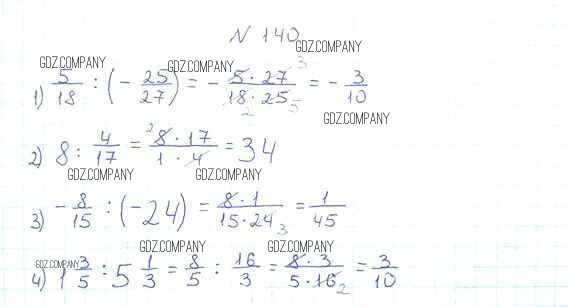 N 140
GDZ.COMPANY
GDZ.COMPANY GDZ.COMPANY
1) 5/18 : (- 25/27) = - 5·27 3/18·25 2 5 = - 3/10
GDZ.COMPANY
2) 8 : 4/17 = 2 8·17/1·4 = 34
GDZ.COMPANY GDZ.COMPANY
3) - 8/15 : (-24) = 8·1/15·24 3 = 1/45
GDZ.COMPANY GDZ.COMPANY
GDZ.COMPANY
4) 1 3/5 : 5 1/3 = 8/5 : 16/3 = 8·3/5·16 2 = 3/10